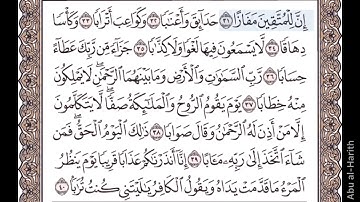 إِنَّ لِلْمُتَّقِينَ مَفَازًا ٣١ حَدَآئِقَ وَأَعْنَٰبًا ٣٢ وَكَوَاعِبَ أَتْرَابًا ٣٣ وَكَأْسًا
دِهَاقًا ٣٤ لَّا يَسْمَعُونَ فِيهَا لَغْوًا وَلَا كِذَّٰبًا ٣٥ جَزَآءً مِّن رَّبِّكَ عَطَآءً
حِسَابًا ٣٦ رَّبِّ ٱلسَّمَٰوَٰتِ وَٱلْأَرْضِ وَمَا بَيْنَهُمَا ٱلرَّحْمَٰنِ لَا يَمْلِكُونَ
مِنْهُ خِطَابًا ٣٧ يَوْمَ يَقُومُ ٱلرُّوحُ وَٱلْمَلَٰٓئِكَةُ صَفًّا لَّا يَتَكَلَّمُونَ
إِلَّا مَنْ أَذِنَ لَهُ ٱلرَّحْمَٰنُ وَقَالَ صَوَابًا ٣٨ ذَٰلِكَ ٱلْيَوْمُ ٱلْحَقُّ فَمَن
شَآءَ ٱتَّخَذَ إِلَىٰ رَبِّهِۦ مَـَٔابًا ٣٩ إِنَّآ أَنذَرْنَٰكُمْ عَذَابًا قَرِيبًا يَوْمَ يَنظُرُ
ٱلْمَرْءُ مَا قَدَّمَتْ يَدَاهُ وَيَقُولُ ٱلْكَافِرُ يَٰلَيْتَنِى كُنتُ تُرَٰبًۢا ٤٠
Abu al-Harith